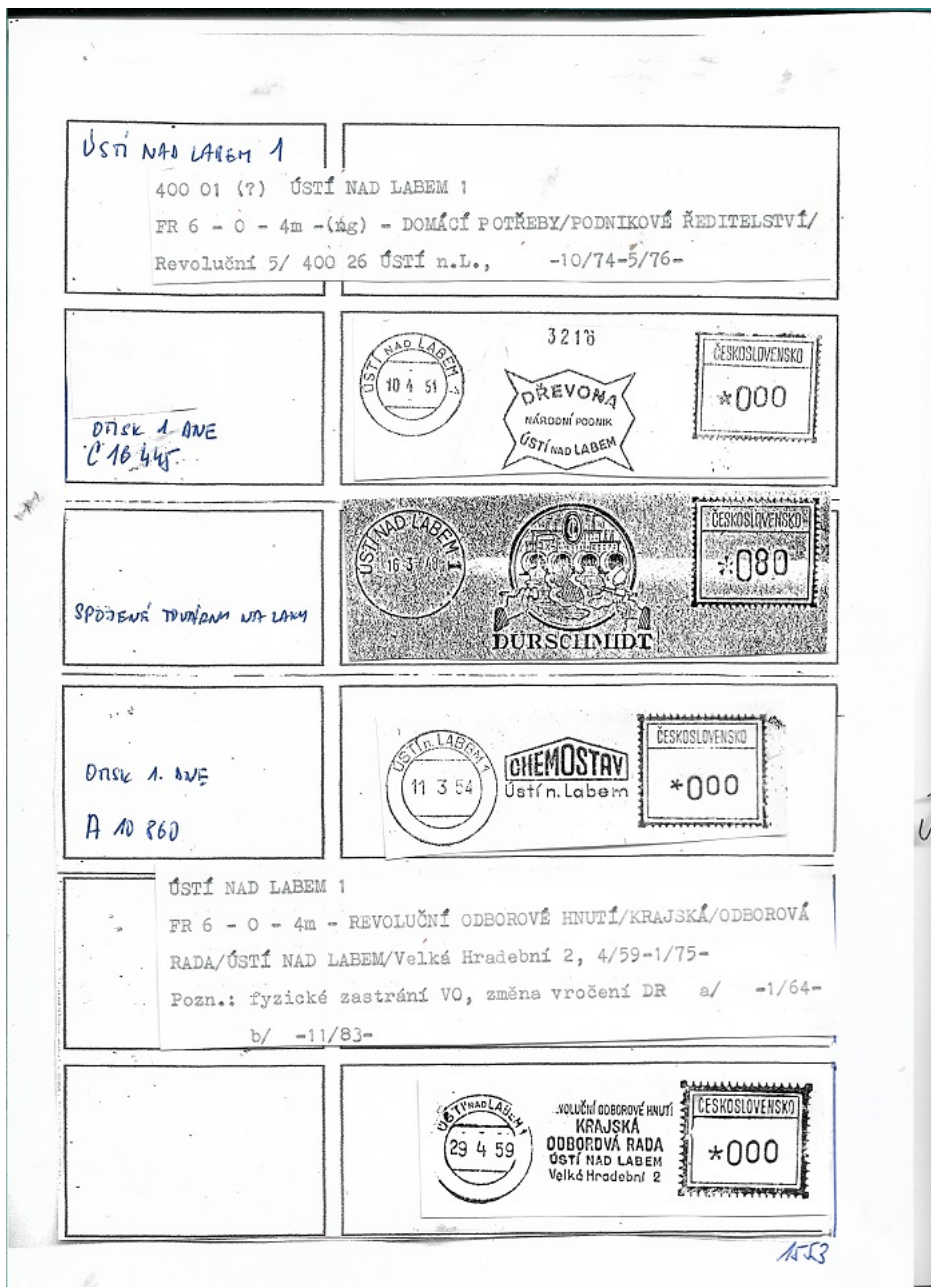 ÚSTÍ NAD LABEM 1
400 01 (?) ÚSTÍ NAD LABEM 1
FR 6 - O - 4m -(ág) - DOMÁCÍ POTŘEBY/PODNIKOVÉ ŘEDITELSTVÍ/
Revoluční 5/ 400 26 ÚSTÍ n.L., -10/74-5/76-
OTISK 1. DNE
C 16 445
ÚSTÍ NAD LABEM 1
10 4 51
3216
DŘEVONA
NÁRODNÍ PODNIK
ÚSTÍ NAD LABEM
ČESKOSLOVENSKO
*000
SPOJENÉ TOVÁRNY NA LAKY
ÚSTÍ NAD LABEM 1
16.3.
DURSCHMIDT
ČESKOSLOVENSKO
*080
OTISK 1. DNE
A 10 860
ÚSTÍ n. LABEM 1
11 3 54
CHEMOSTAV
Ústí n. Labem
ČESKOSLOVENSKO
*000
ÚSTÍ NAD LABEM 1
FR 6 - O - 4m - REVOLUČNÍ ODBOROVÉ HNUTÍ/KRAJSKÁ/ODBOROVÁ
RADA/ÚSTÍ NAD LABEM/Velká Hradební 2, 4/59-1/75-
Pozn.: fyzické zastrání VO, změna vročení DR a/ -1/64-
b/ -11/83-
ÚSTÍ NAD LABEM 1
29 4 59
VOLUČNÍ ODBOROVÉ HNUTÍ
KRAJSKÁ
ODBOROVÁ RADA
ÚSTÍ NAD LABEM
Velká Hradební 2
ČESKOSLOVENSKO
*000
1553